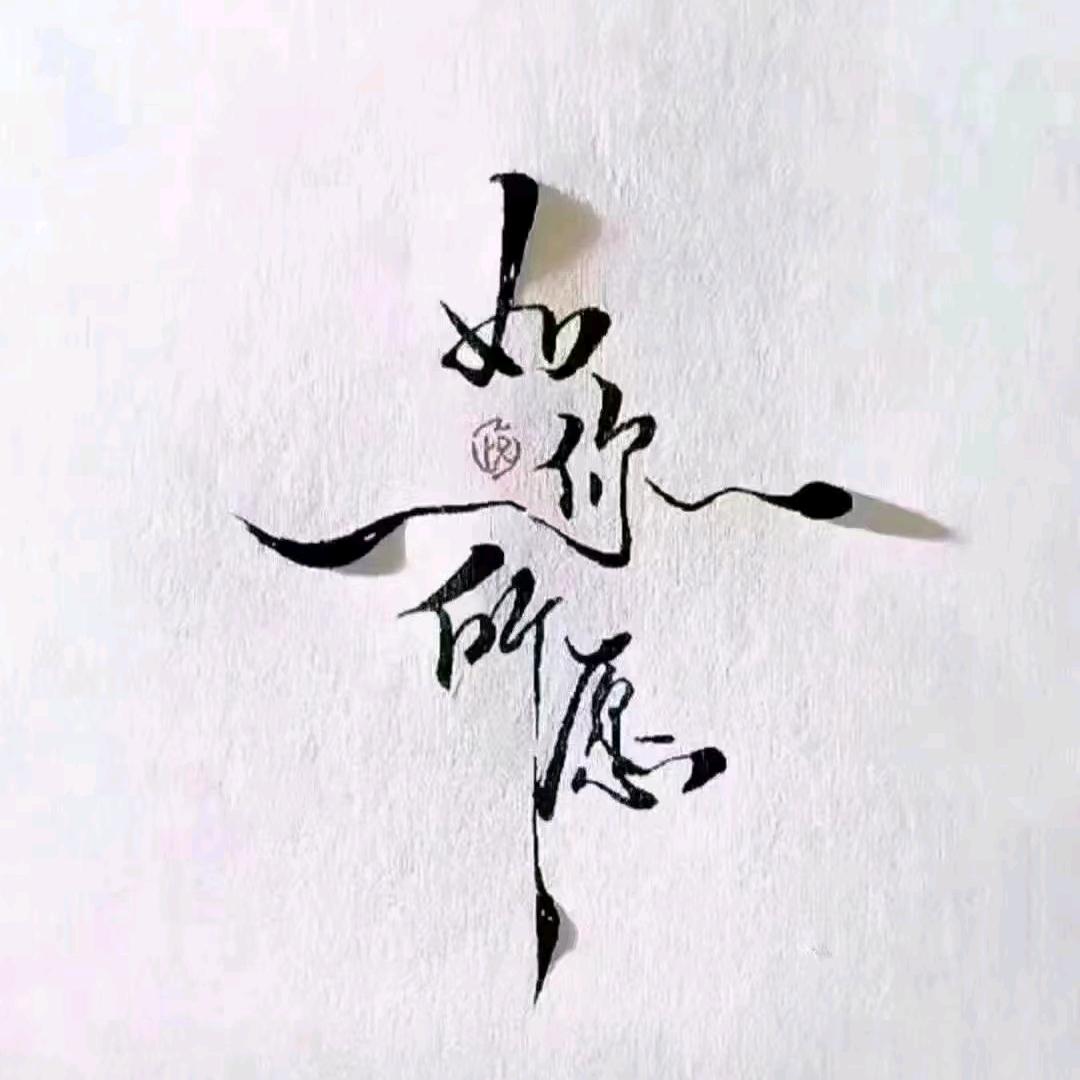 如
你
所
愿